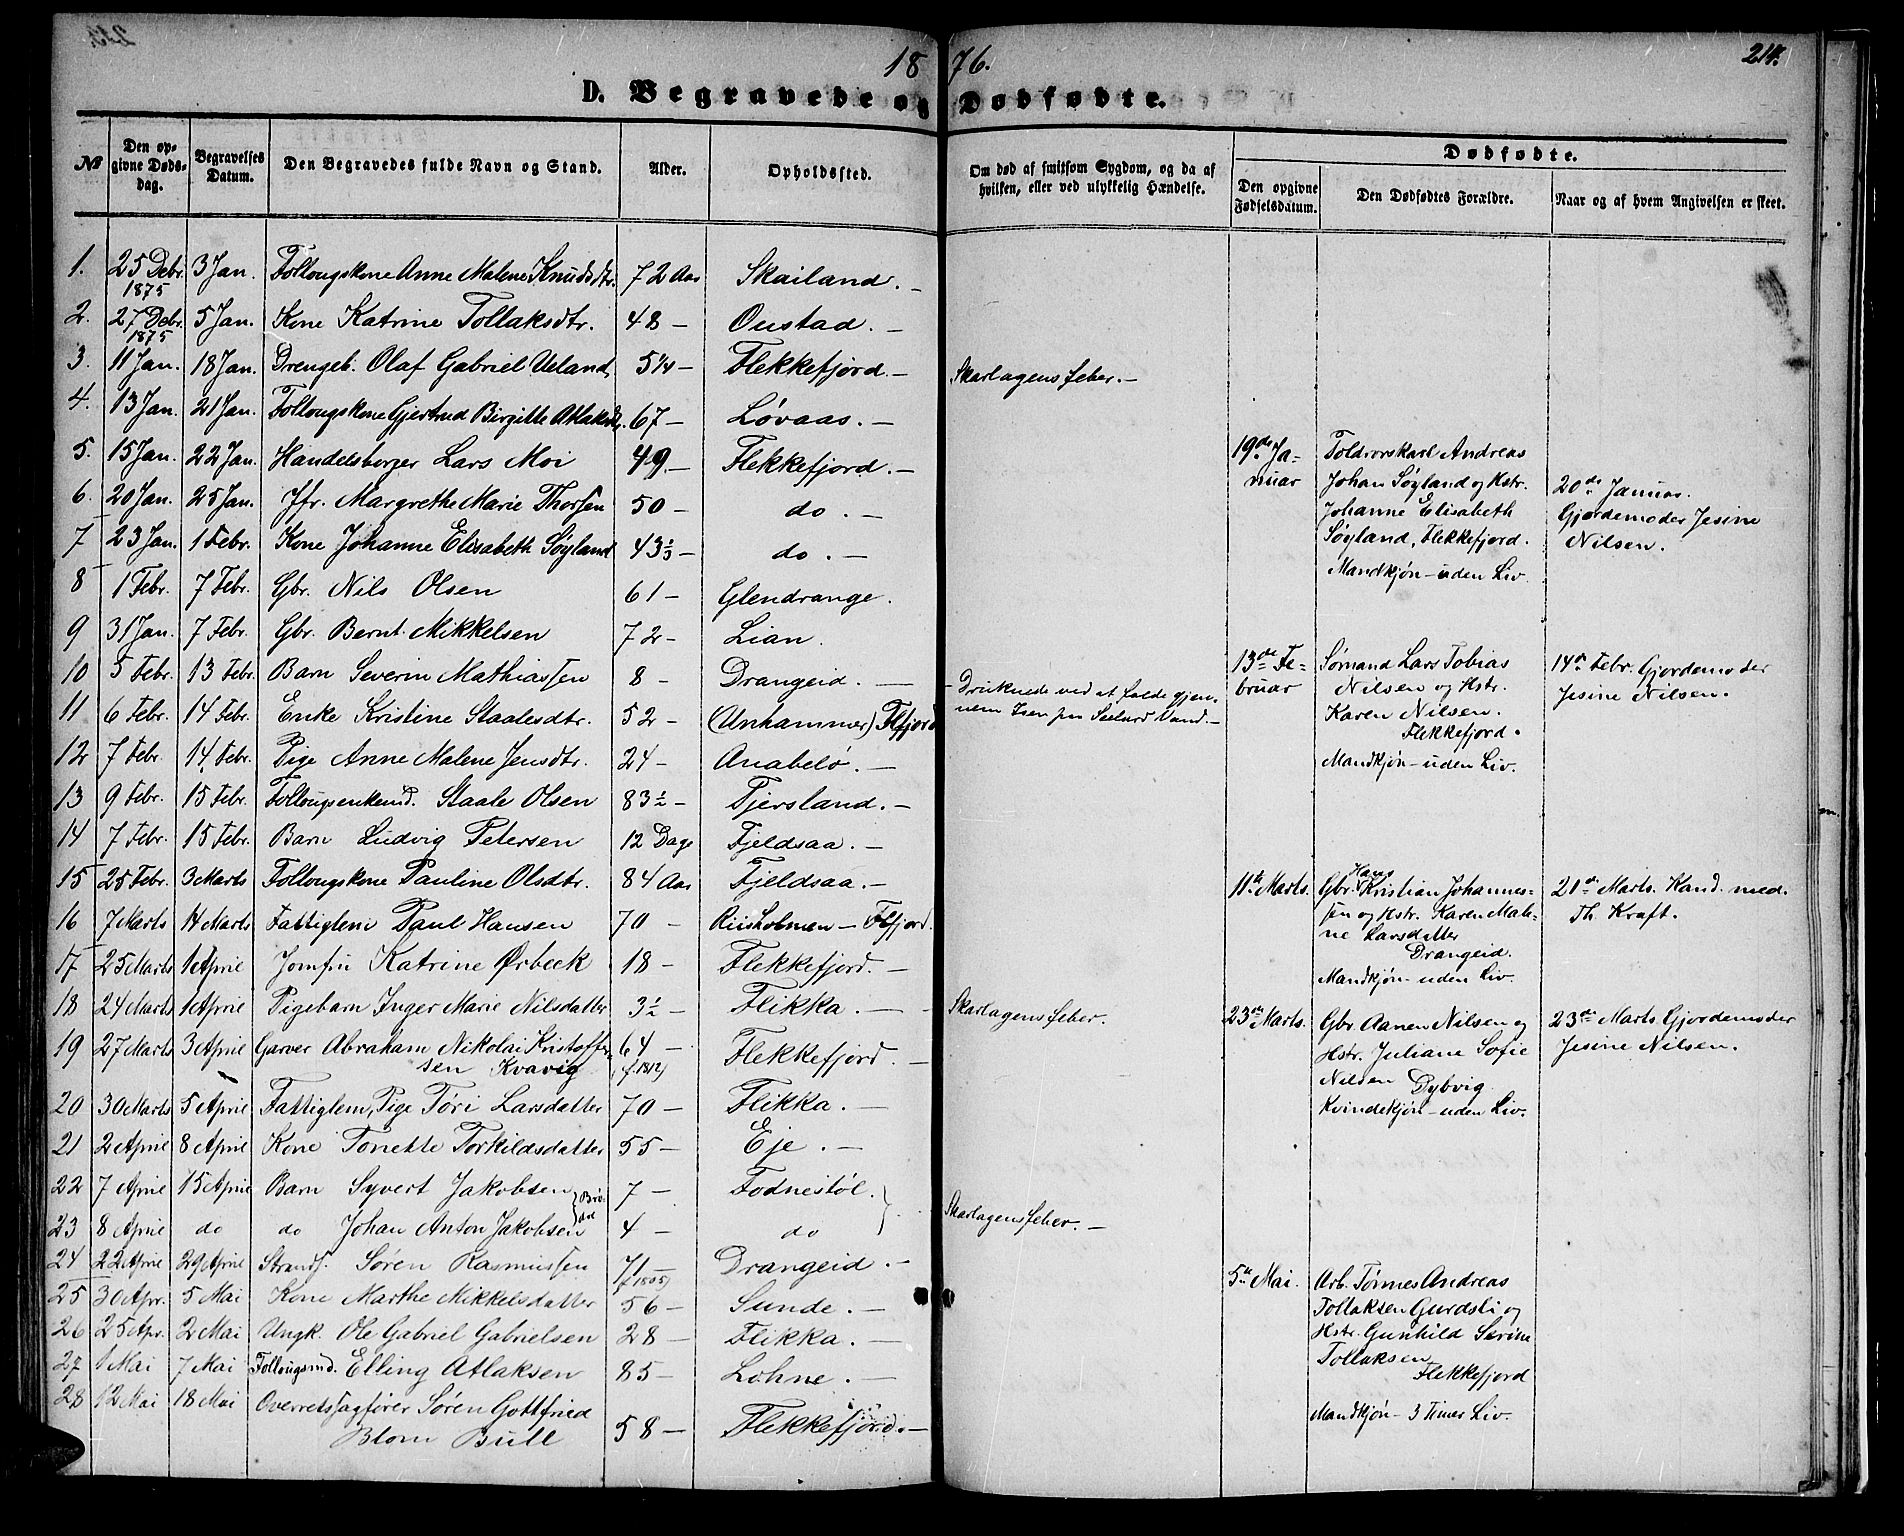 18 76. 214.
D. Begravede og Dødfødte.
№ Den opgivne Dødsdag. Begravelses Datum. Den Begravedes fulde Navn og Stand. Alder. Opholdssted. Om død af smitsom Sygdom, og da af hvilken, eller ved ulykkelig Hændelse. Dødfødte. Den opgivne Fødselsdatum. Den Dødfødtes Forældre. Naar og af hvem Angivelsen er skeet.
1. 25 Debr. 1875 3 Jan. Follougskone Anne Malene Knudsdtr. 72 Aar Skailand. -
2. 27 Debr. 1875 5 Jan. Kone Katrine Tollaksdtr. 48 - Oustad. -
3. 11 Jan. 18 Jan. Drengeb. Olaf Gabriel Ueland, 5 1/4 - Flekkefjord. - Skarlagensfeber. -
4. 13 Jan. 21 Jan. Follougskone Gjertrud Birgitte Atlaksdtr. 67 - Løvaas. -
5. 15 Jan. 22 Jan. Handelsborger Lars Moi 49. - Flekkefjord. -
6. 20 Jan. 25 Jan. Jfr. Margrethe Marie Thorsen 50 - do. -
7 23 Jan. 1 Febr. Kone Johanne Elisabeth Søyland 43 1/3 - do. -
8 1 Febr. 7 Febr. Gbr. Nils Olsen 61 - Glendrange.
9 31 Jan. 7 Febr. Gbr. Bernt Mikkelsen 72 - Lian.
10 5 Febr. 13 Febr. Barn Severin Mathiassen 8 - Drangeid. - - Druknede ved at falde gjennem Isen paa Vand. -
11 6 Febr. 14 Febr. Enke Kristine Staalesdtr. 52 - (Anhammer) Flfjord
12 7 Febr. 14 Febr. Pige Anne Malene Jensdtr. 24 - Anabelø. -
13 9 Febr. 15 Febr. Follougsenkemd. Staale Olsen 83 1/2 - Tjersland. -
14 7 Febr. 15 Febr. Barn Ludvig Petersen 12 Dage Fjeldsaa. -
15 25 Febr. 3 Marts Follougskone Pauline Olsdtr. 84 Aar Fjeldsaa. -
16 7 Marts 14 Marts Fattiglem Paul Hansen 70 - Riisholmen - Flfjord.
17 25 Marts 1 Aprie Jomfru Katrine Ørbeck 18 - Flekkefjord. -
18 24 Marts 1 Aprie Pigebarn Inger Marie Nilsdatter 3 1/2 - Flikka. - Skarlagensfeber.
19 27 Marts 3 Aprie Garver Abraham Nikolai Kristoffersen Kvavig 64 - (f. 1812) Flekkefjord. -
20 30 Marts 5 Aprie Fattiglem, Pige Tøri Larsdatter 70 - Flikka. -
21 2 Aprie 8 Aprie Kone Tonette Torkildsdatter 55 - Eje. -
22 7 Aprie 15 Aprie Barn Syvert Jakobsen } Brødre 7 - Fodnestøl. }
23 8 Aprie do do Johan Anton Jakobsen 4 - do Skarlagensfeber. -
24 22 Aprie 29 Aprie Strands. Søren Rasmussen 71 - (f. 1805) Drangeid. -
25 30 Apr. 5 Mai Kone Marthe Mikkelsdatter 56 - Sunde. -
26 25 Apr. 2 Mai Ungk. Ole Gabriel Gabrielsen 28 - Flikka. -
27 1 Mai 7 Mai Follougsmd. Elling Atlaksen 85 - Lohne. -
28 12 Mai 18 Mai Overretssagfører Søren Gottfried Blom Bull 58 - Flekkefjord. -
19de Januar Toldrorskarl Andreas
Johan Søyland og Hstr.
Johanne Elisabeth
Søyland, Flekkefjord.
Mandkjøn - uden Liv
20de Januar.
Gjordemoder Jesine
Nilsen.
13de Februar Sømand Lars Tobias
Nilsen og Hstr.
Karen Nilsen.
Flekkefjord.
Mandkjøn - uden Liv.
14de Febr. Gjordemoder
Jesine Nilsen.
11te Marts. Gbr. Hans Kristian Johannessen og Hstr. Karen Malene Larsdatter
Drangeid.
Mandkjøn - uden Liv.
21de Marts. Kand. med.
Th. Kraft.
23de Marts. Gbr. Aanen Nilsen og
Hstr. Juliane Sofie
Nilsen Dybvig
Kvindekjøn - uden Liv.
23de Marts. Gjordemoder
Jesine Nilsen.
5te Mai. Arb. Tønnes Andreas
Tollaksen Gurdsli og
Hstr. Gunhild Serine
Tollaksen
Flekkefjord
Mandkjøn - 3 Timer Liv.